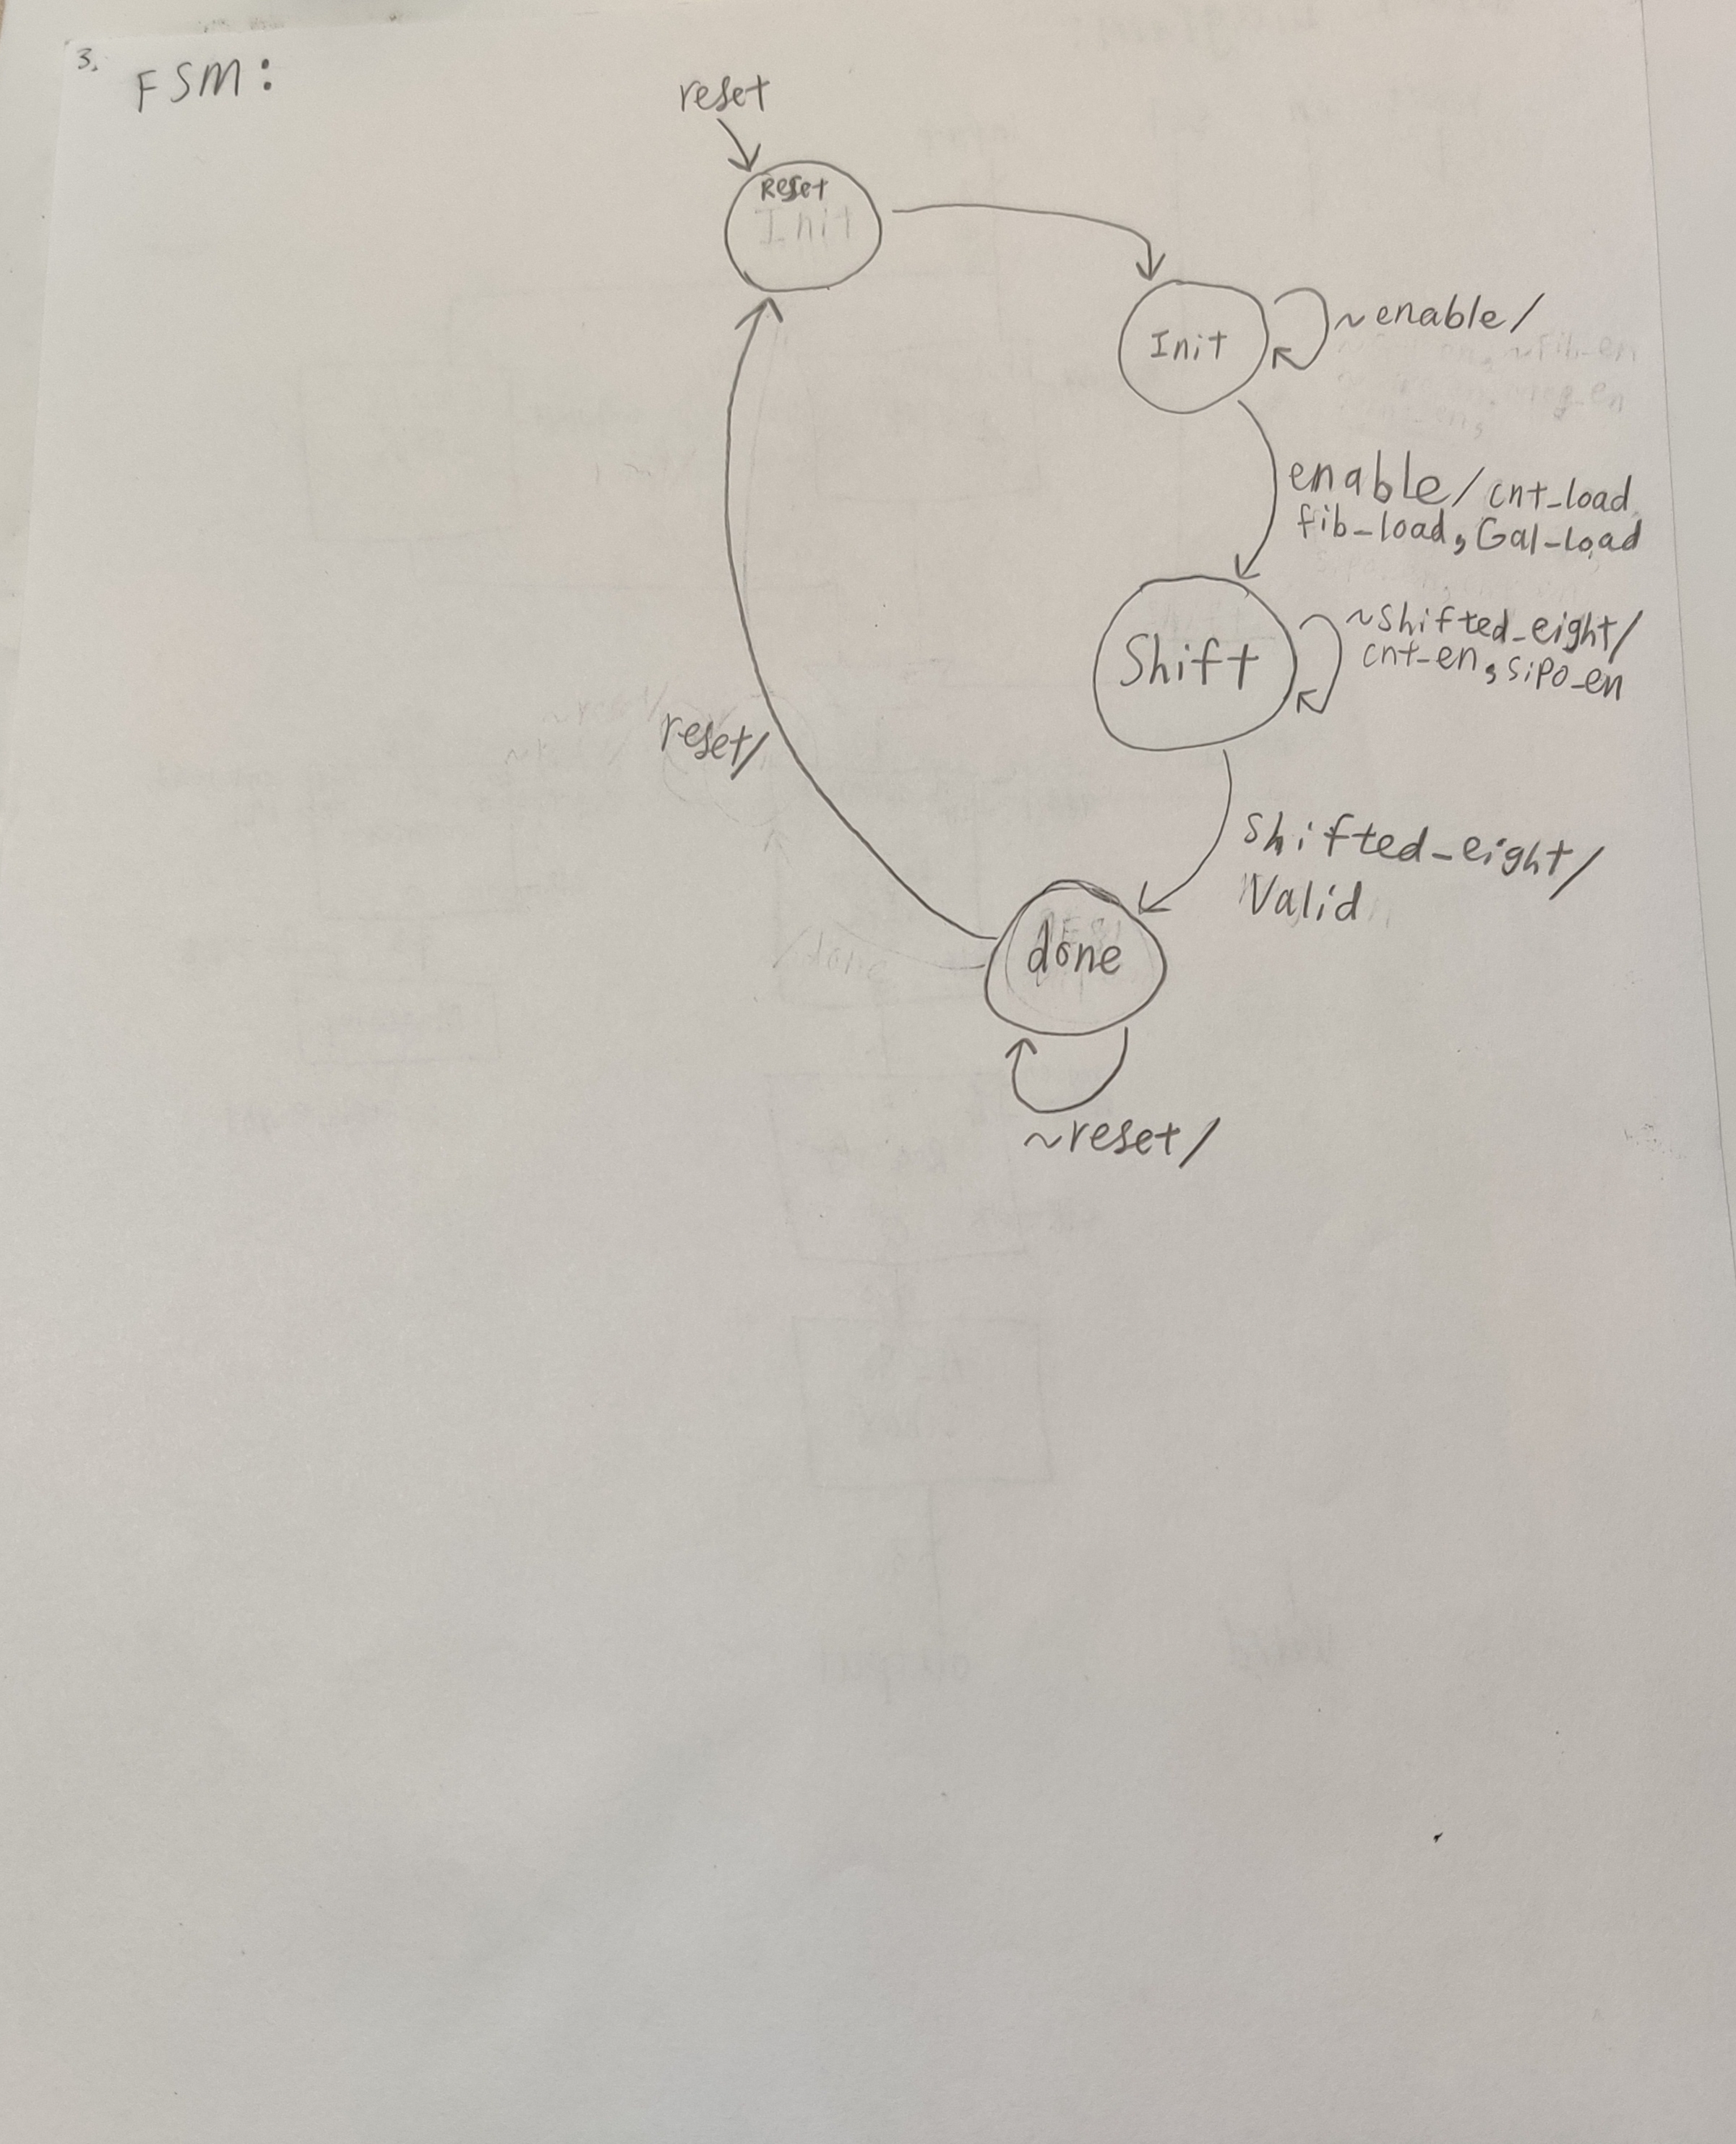 3.
FSM:
reset
Reset
Init
Init
~enable/
enable/ cnt_load
fib_load, Gal_load
Shift
~shifted_eight/
cnt_en, sipo_en
reset/
shifted_eight/
Valid
done
~reset/